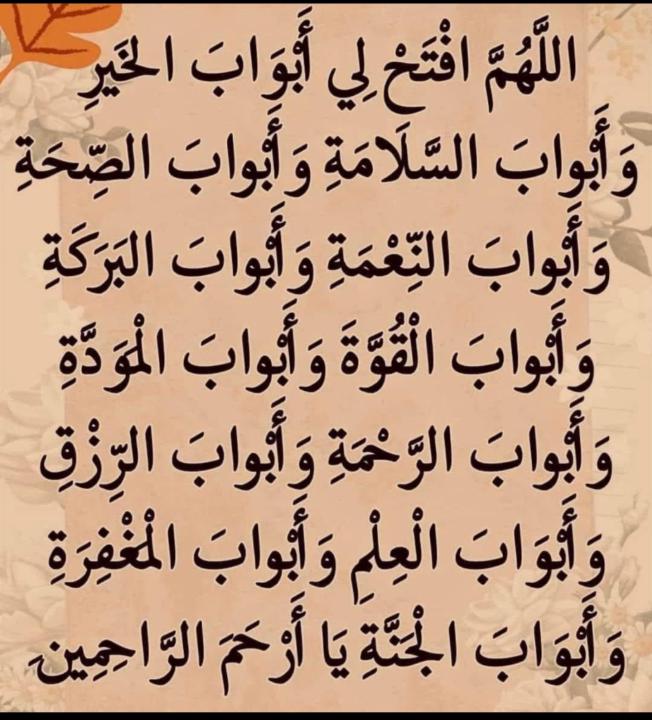 اللَّهُمَّ افْتَحْ لِي أَبْوَابَ الخَيرِ
وَأَبْوابَ السَّلَامَةِ وَأَبْوابَ الصِّحَةِ
وَأَبْوابَ النِّعْمَةِ وَأَبْوابَ البَرَكَةِ
وَأَبْوابَ الْقُوَّةَ وَأَبْوابَ الْمَوَدَّةِ
وَأَبْوابَ الرَّحْمَةِ وَأَبْوابَ الرِّزْقِ
وَأَبْوَابَ الْعِلْمِ وَأَبْوابَ الْمَغْفِرَةِ
وَأَبْوَابَ الجْنَّةِ يَا أَرْحَمَ الرَّاحِمِين